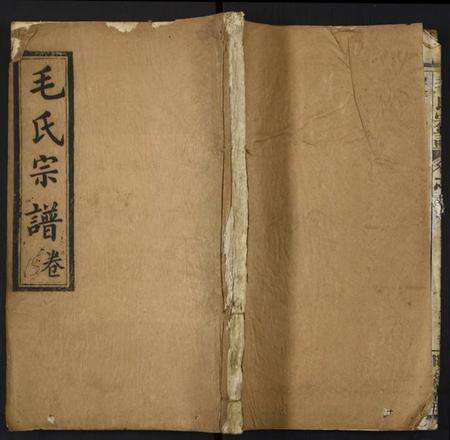 毛氏宗譜
卷